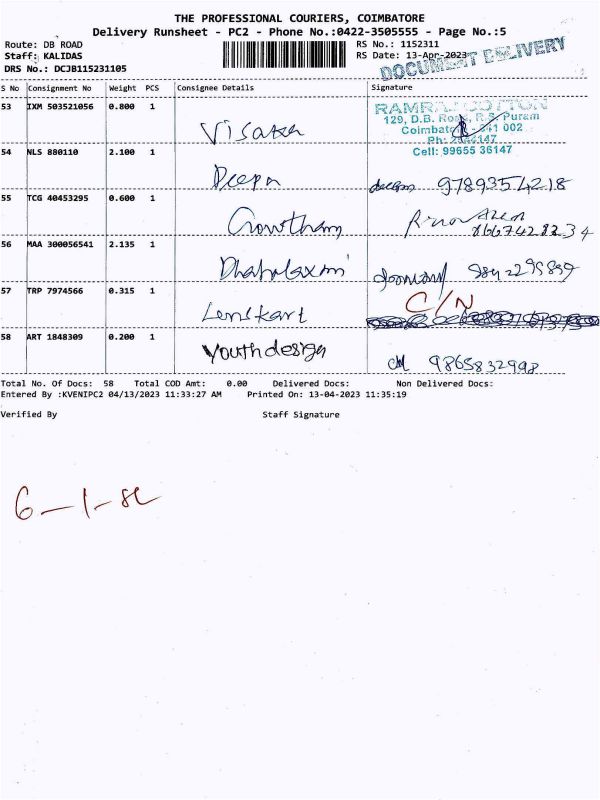 THE PROFESSIONAL COURIERS, COIMBATORE
Delivery Runsheet - PC2 - Phone No.:0422-3505555 - Page No.:5
Route: DB ROAD RS No.: 1152311
Staff: KALIDAS RS Date: 13-Apr-2023
DRS No.: DCJB115231105 DOCUMENT DELIVERY
S No Consignment No Weight PCS Consignee Details Signature
53 IXM 503521056 0.800 1
RAMRAJ COTTON
129, D.B. Road, R.S. Puram
Coimbatore - 641 002
Ph:
Cell: 99655 36147
54 NLS 880110 2.100 1 Deepa 9789354218
55 TCG 40453295 0.600 1 Gowtham
56 MAA 300056541 2.135 1 Dhahalaxmi
57 TRP 7974566 0.315 1 Lenskart C/N
58 ART 1848309 0.200 1 Youth design 9865832998
Total No. Of Docs: 58 Total COD Amt: 0.00 Delivered Docs: Non Delivered Docs:
Entered By :KVENIPC2 04/13/2023 11:33:27 AM Printed On: 13-04-2023 11:35:19
Verified By Staff Signature